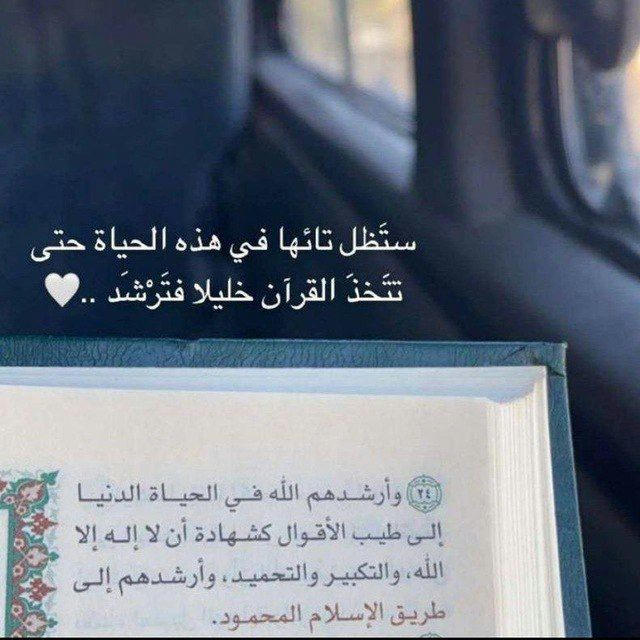 ستَظل تائها في هذه الحياة حتى
تتَخذَ القرآن خليلا فتَرْشَد ..🤍
٢٤ وأرشدهم الله في الحياة الدنيا
إلى طيب الأقوال كشهادة أن لا إله إلا
الله، والتكبير والتحميد، وأرشدهم إلى
طريق الإسلام المحمود.